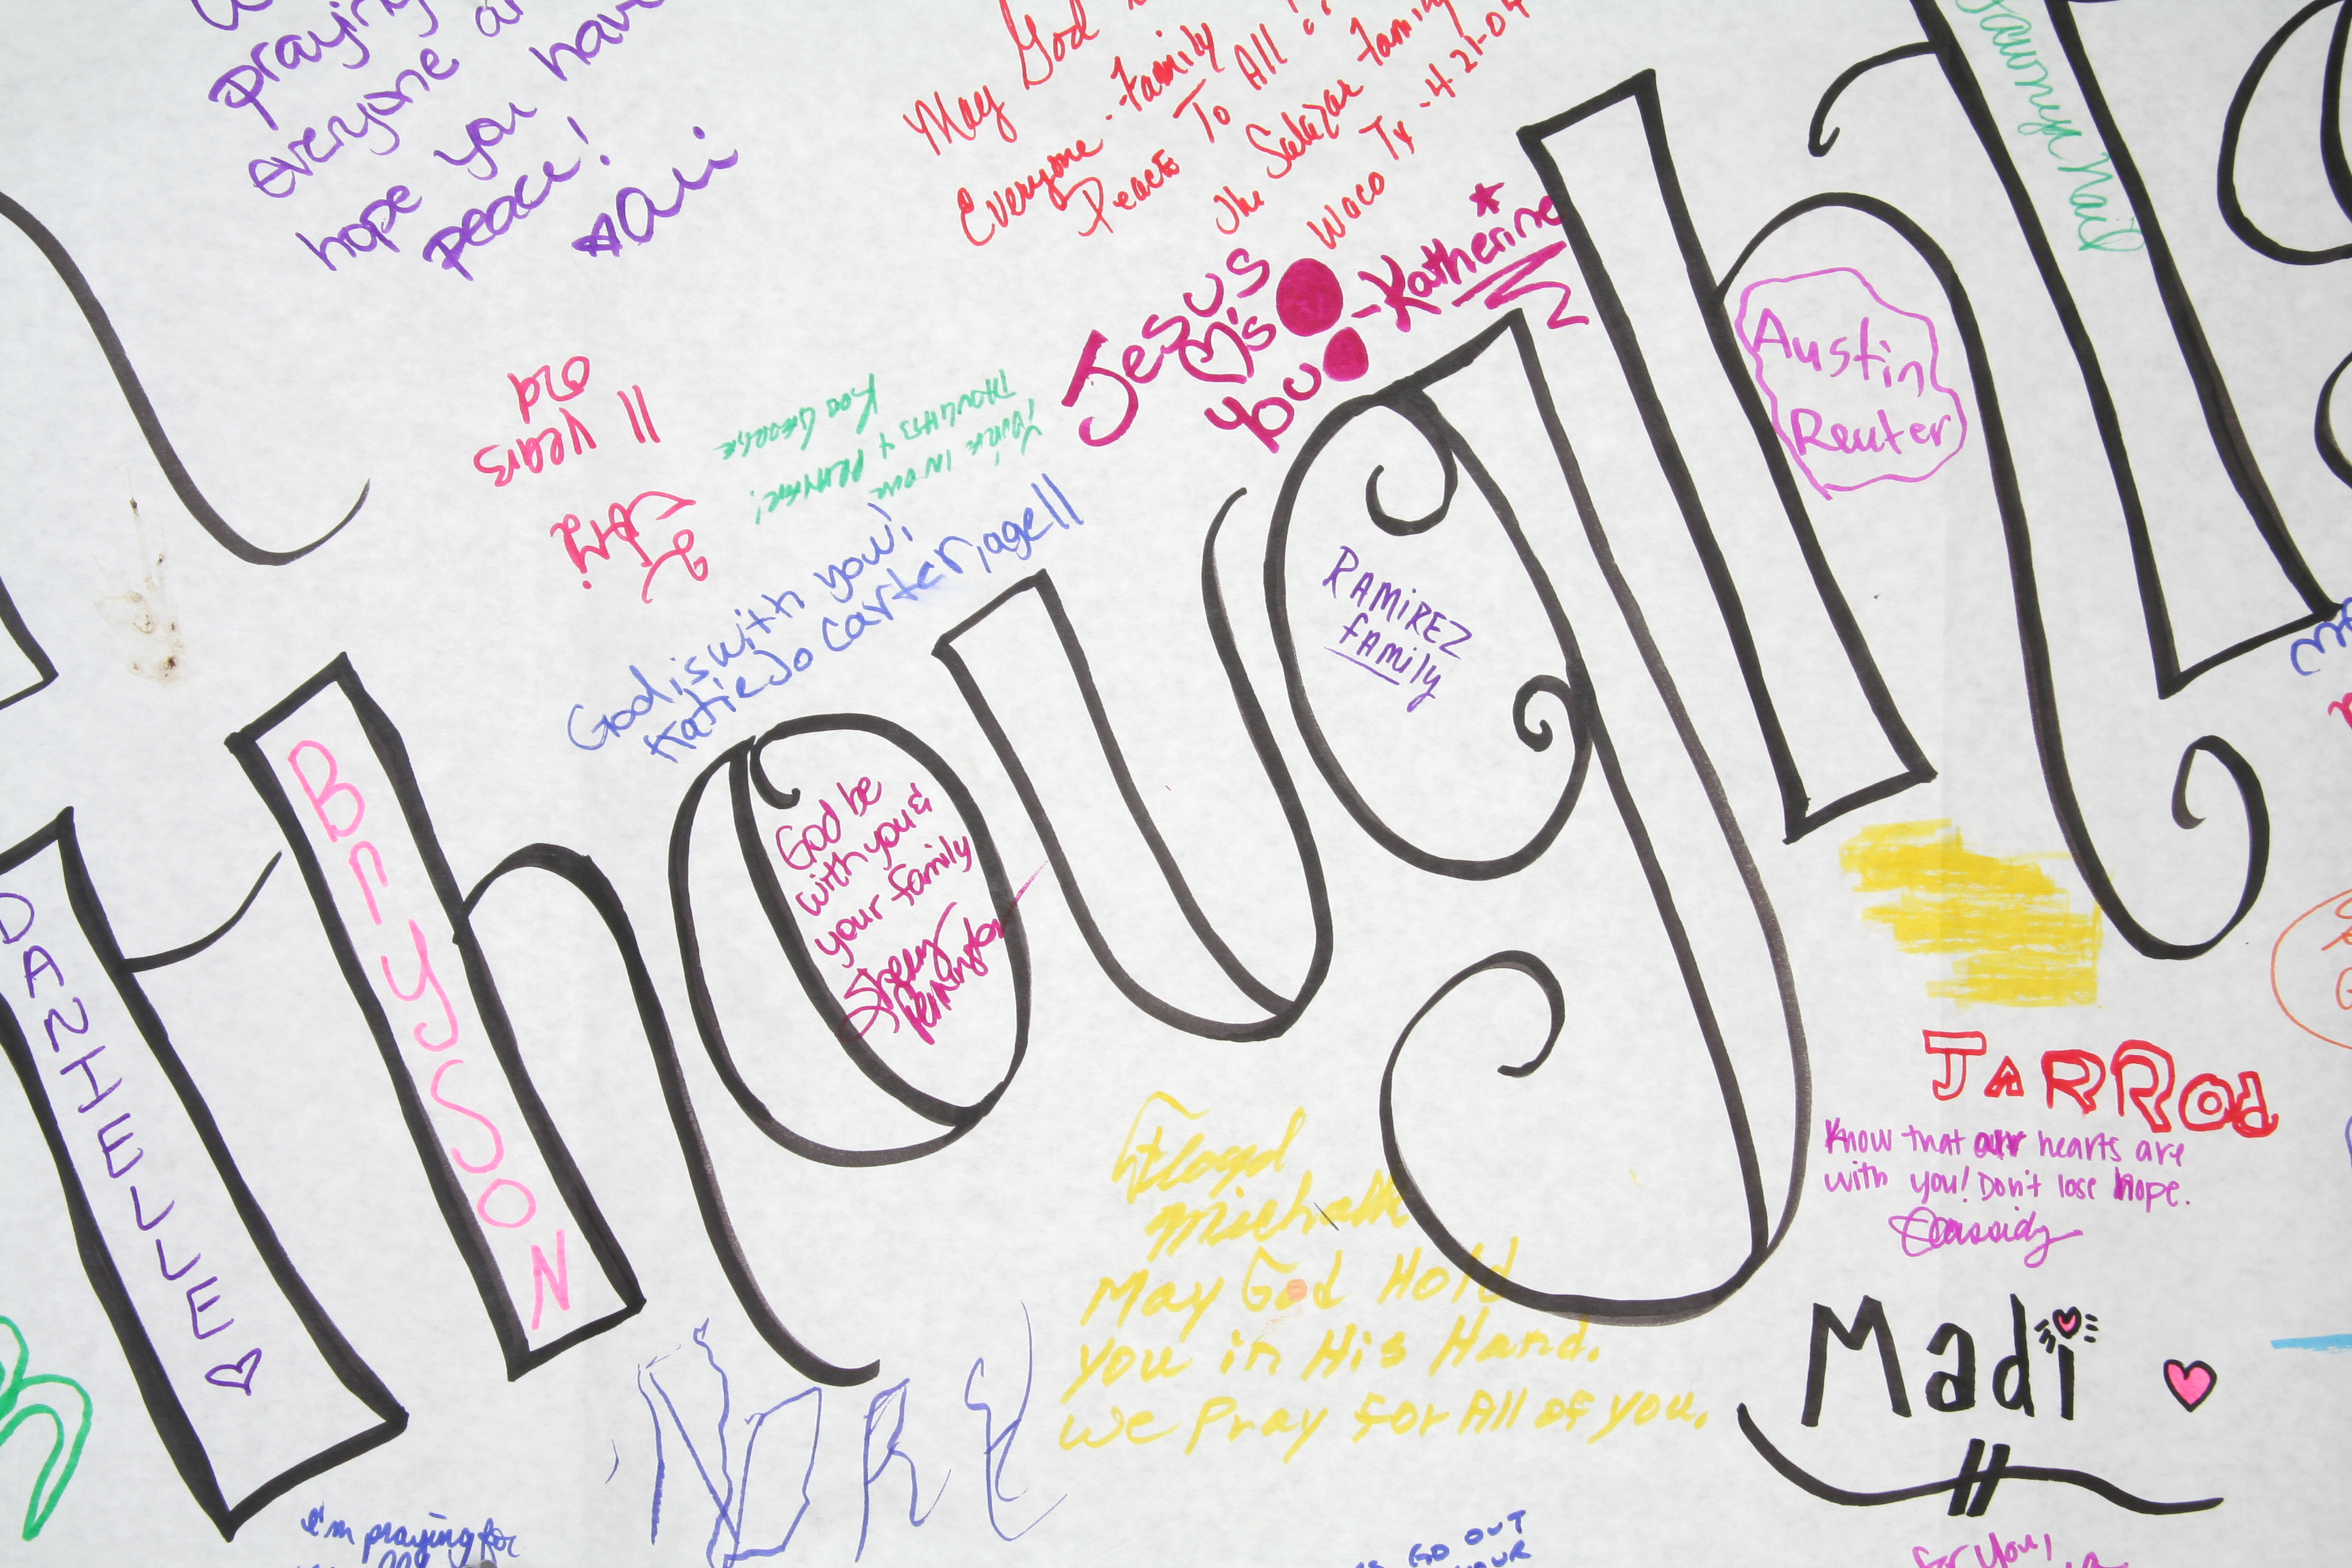 praying
everyone
hope you have
peace!
May God
Everyone - Family
Peace To All!
The Salazar Family
Waco Tx - 4-21-04
Jesus
♡'s
you - Katherine
Tawnya Nail
Austin
Reuter
11 years
old
You're in our
thoughts &
God is with you!
Katie Jo Carter, age 11
RAMIREZ
FAMily
Thought
BrySON
DANIELLE ♡
God be
with you &
your family
Sherry
Penington
JARROd
Know that our hearts are
with you! Don't lose hope.
Cassidy
Floyd
May God Hold
you in His Hand.
We Pray for All of you.
Madi
I'm praying for
GO OUT
for you!